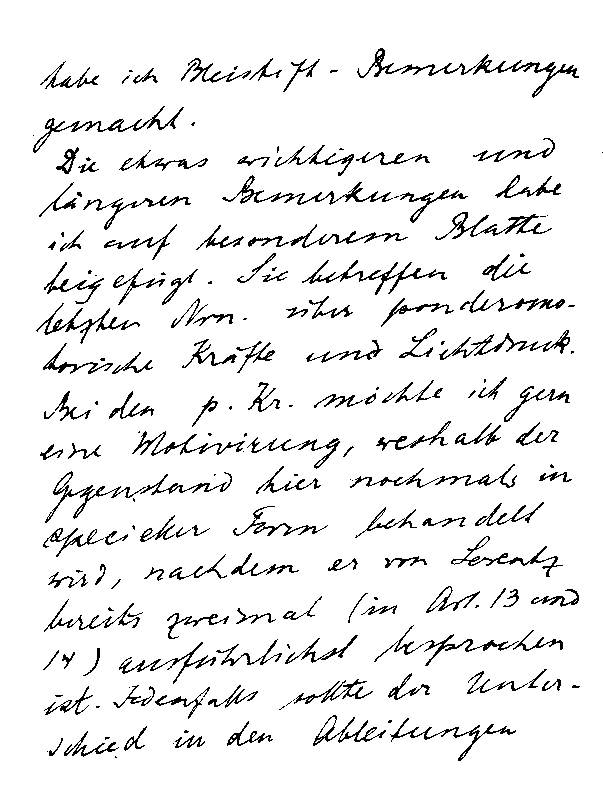 habe ich Bleistift-Bemerkungen
gemacht.
Die etwas wichtigeren und
längeren Bemerkungen habe
ich auf besonderem Blatte
beigefügt. Sie betreffen die
letzten Nrn. über ponderomo-
torische Kräfte und Lichtdruck.
Bei den p. Kr. möchte ich gern
eine Motivirung, weshalb der
Gegenstand hier nochmals in
specieller Form behandelt
wird, nachdem er von Lorentz
bereits zweimal (in Art. 13 und
14) ausführlichst besprochen
ist. Jedenfalls sollte der Unter-
schied in den Ableitungen